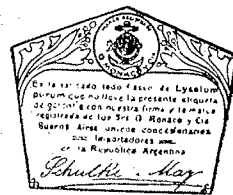 MONACO
Es falsificado todo frasco de Lysolum
purum que no lleve la presente etiqueta
de garantía con nuestra firma y la marca
registrada de los Srs. O. Monaco y Cia
Buenos Aires unicos concesionarios
Importadores
en la Republica Argentina
Schulke Mayr